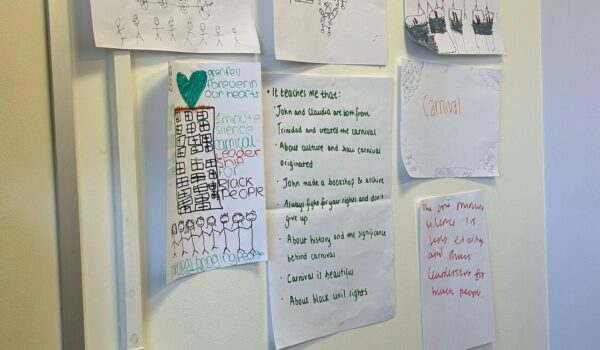 grenfell
forever in
our hearts
1 minute
silence
carnical
leader
ship
for
BLACK
PEOPLE
bringing People
• It teaches me that:
· John and Claudia are both from
Trinidad and created the carnival
· About culture and how carnival
originated
· John made a bookshop & archive
· Always fight for your rights and don't
give up
· About history and the significance
behind carnival
· Carnival is beautiful
· About black civil rights
Carnival
The one minute
silence is
very
and shows
leadership for
black people.